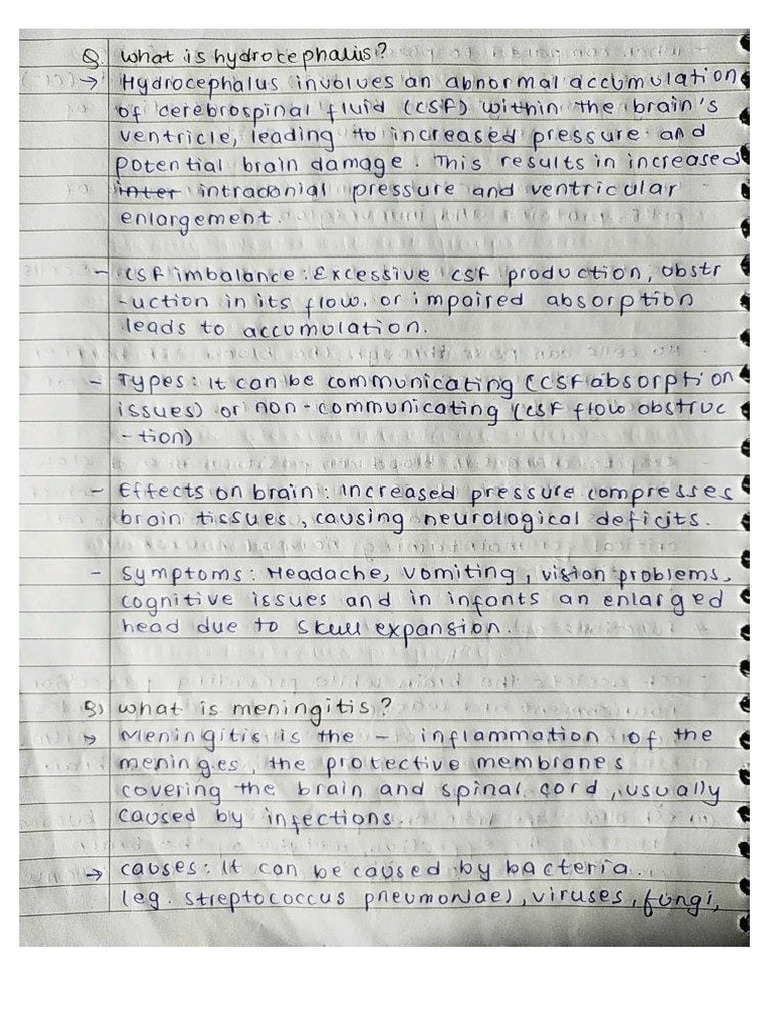 Q. What is hydrocephalus?
→ Hydrocephalus involves an abnormal accumulation
of cerebrospinal fluid (CSF) within the brain's
ventricle, leading to increased pressure and
potential brain damage. This results in increased
inter intracranial pressure and ventricular
enlargement.
- CSF imbalance: Excessive CSF production, obstr
-uction in its flow, or impaired absorption
leads to accumulation.
- Types: It can be communicating (CSF absorption
issues) or non-communicating (CSF flow obstruc
-tion)
- Effects on brain: Increased pressure compresses
brain tissues, causing neurological deficits.
- Symptoms: Headache, vomiting, vision problems,
cognitive issues and in infants an enlarged
head due to skull expansion.
What is meningitis?
→ Meningitis is the - inflammation of the
meninges, the protective membranes
covering the brain and spinal cord, usually
caused by infections.
→ causes: It can be caused by bacteria.
(eg. streptococcus pneumoniae), viruses, fungi,